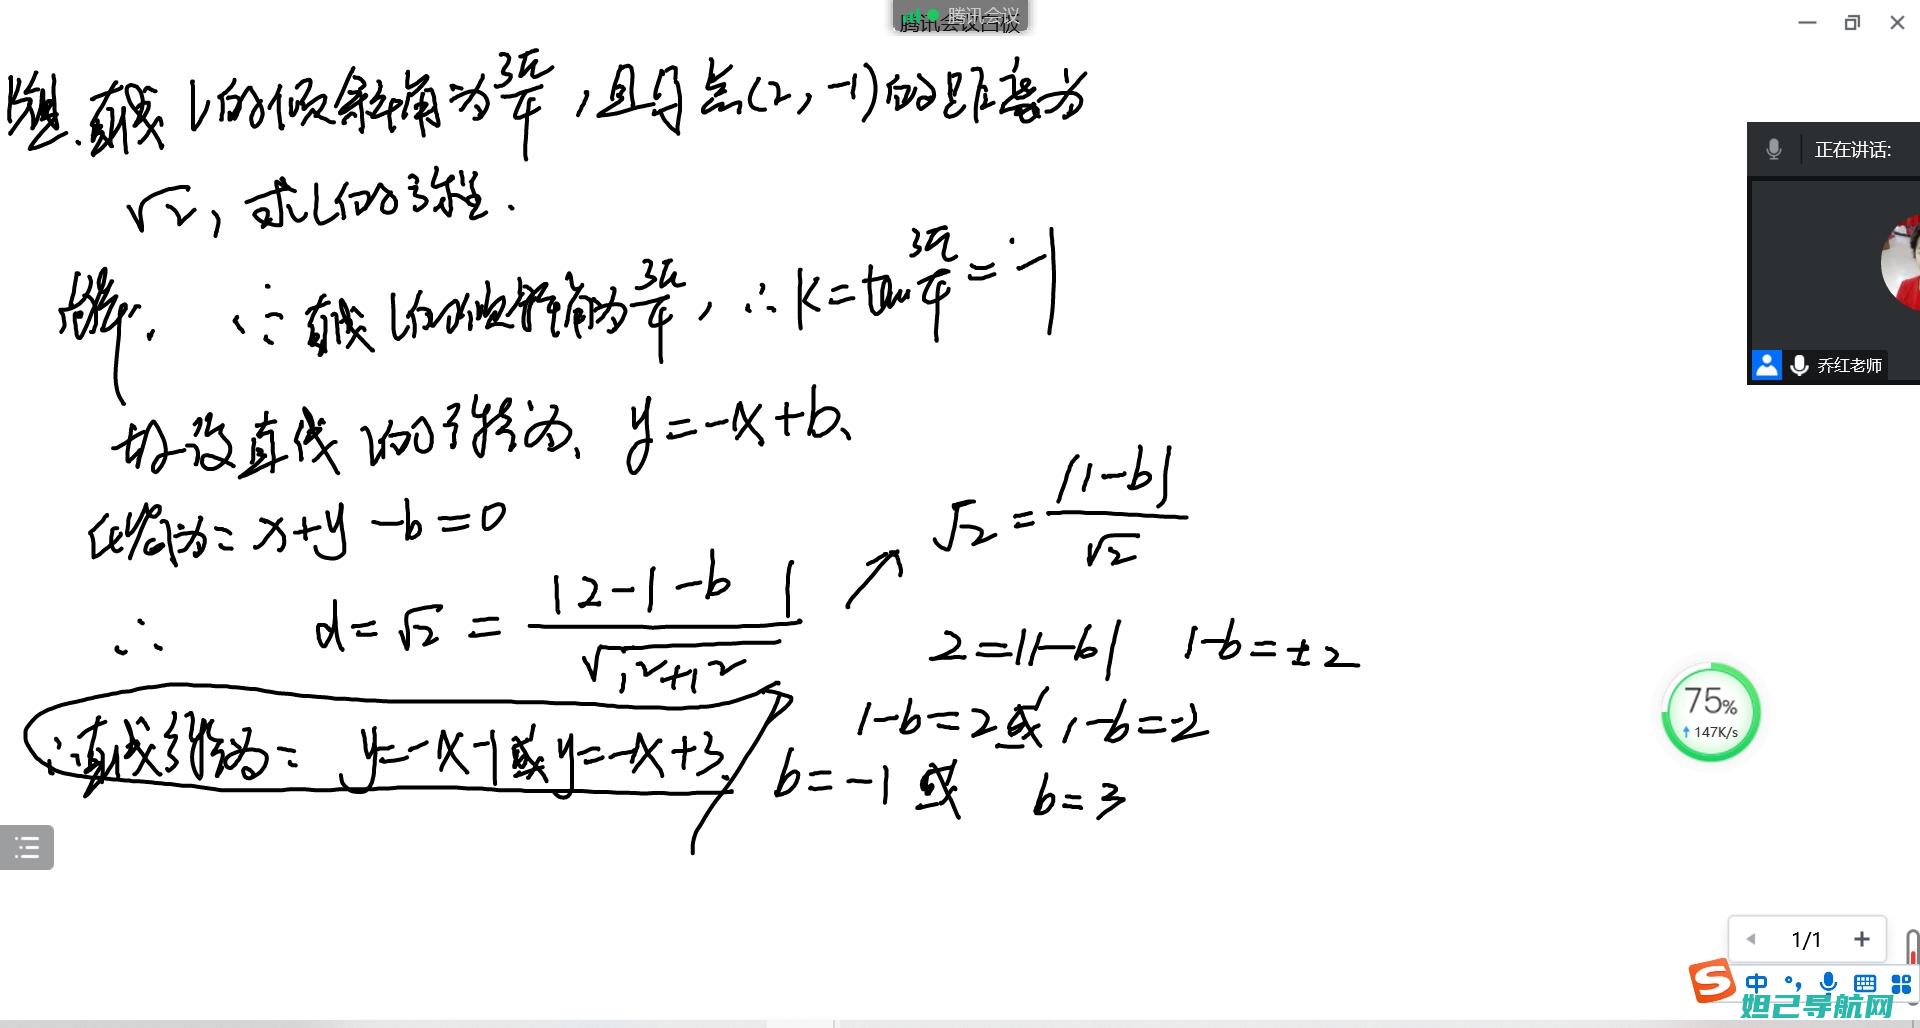 腾讯会议
腾讯会议白板
题. 直线l的倾斜角为3π/4, 且与点(2, -1)的距离为
√2, 求l的方程.
解. ∵直线l的倾斜角为3π/4, ∴k=tan 3π/4=-1
故设直线l的方程为、y=-x+b、
化简为: x+y-b=0
∴ d=√2=|2-1-b|/√1²+1²
√2=|1-b|/√2
2=|1-b| 1-b=±2
1-b=2或1-b=-2
b=-1或 b=3
∴直线方程为: y=-x-1或y=-x+3.
正在讲话:
乔红老师
75%
147K/s
1/1
中
妲己导航网